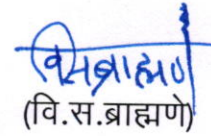 विसब्राह्मणे
(वि.स.ब्राह्मणे)